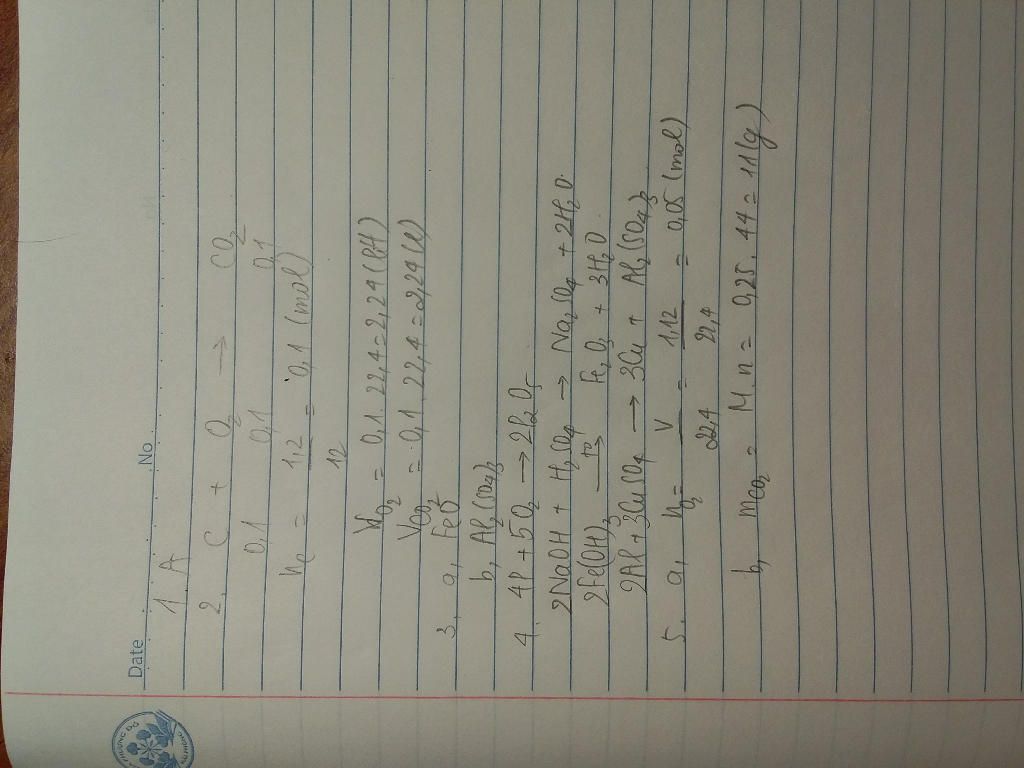 Date No
1. A
2. C + O2 → CO2
0,1 0,1 0,1
nC = 1,2 / 12 = 0,1 (mol)
VO2 = 0,1. 22,4 = 2,24 (lít)
VCO2 = 0,1. 22,4 = 2,24 (l)
3, a, FeO
b, Al2(SO4)3
4. 4P + 5O2 → 2P2O5
2NaOH + H2SO4 → Na2SO4 + 2H2O.
2Fe(OH)3 → Fe2O3 + 3H2O.
2Al + 3CuSO4 → 3Cu + Al2(SO4)3
5. a, nO2 = V / 22,4 = 1,12 / 22,4 = 0,05 (mol)
b, mCO2 = M.n = 0,25. 44 = 11 (g)